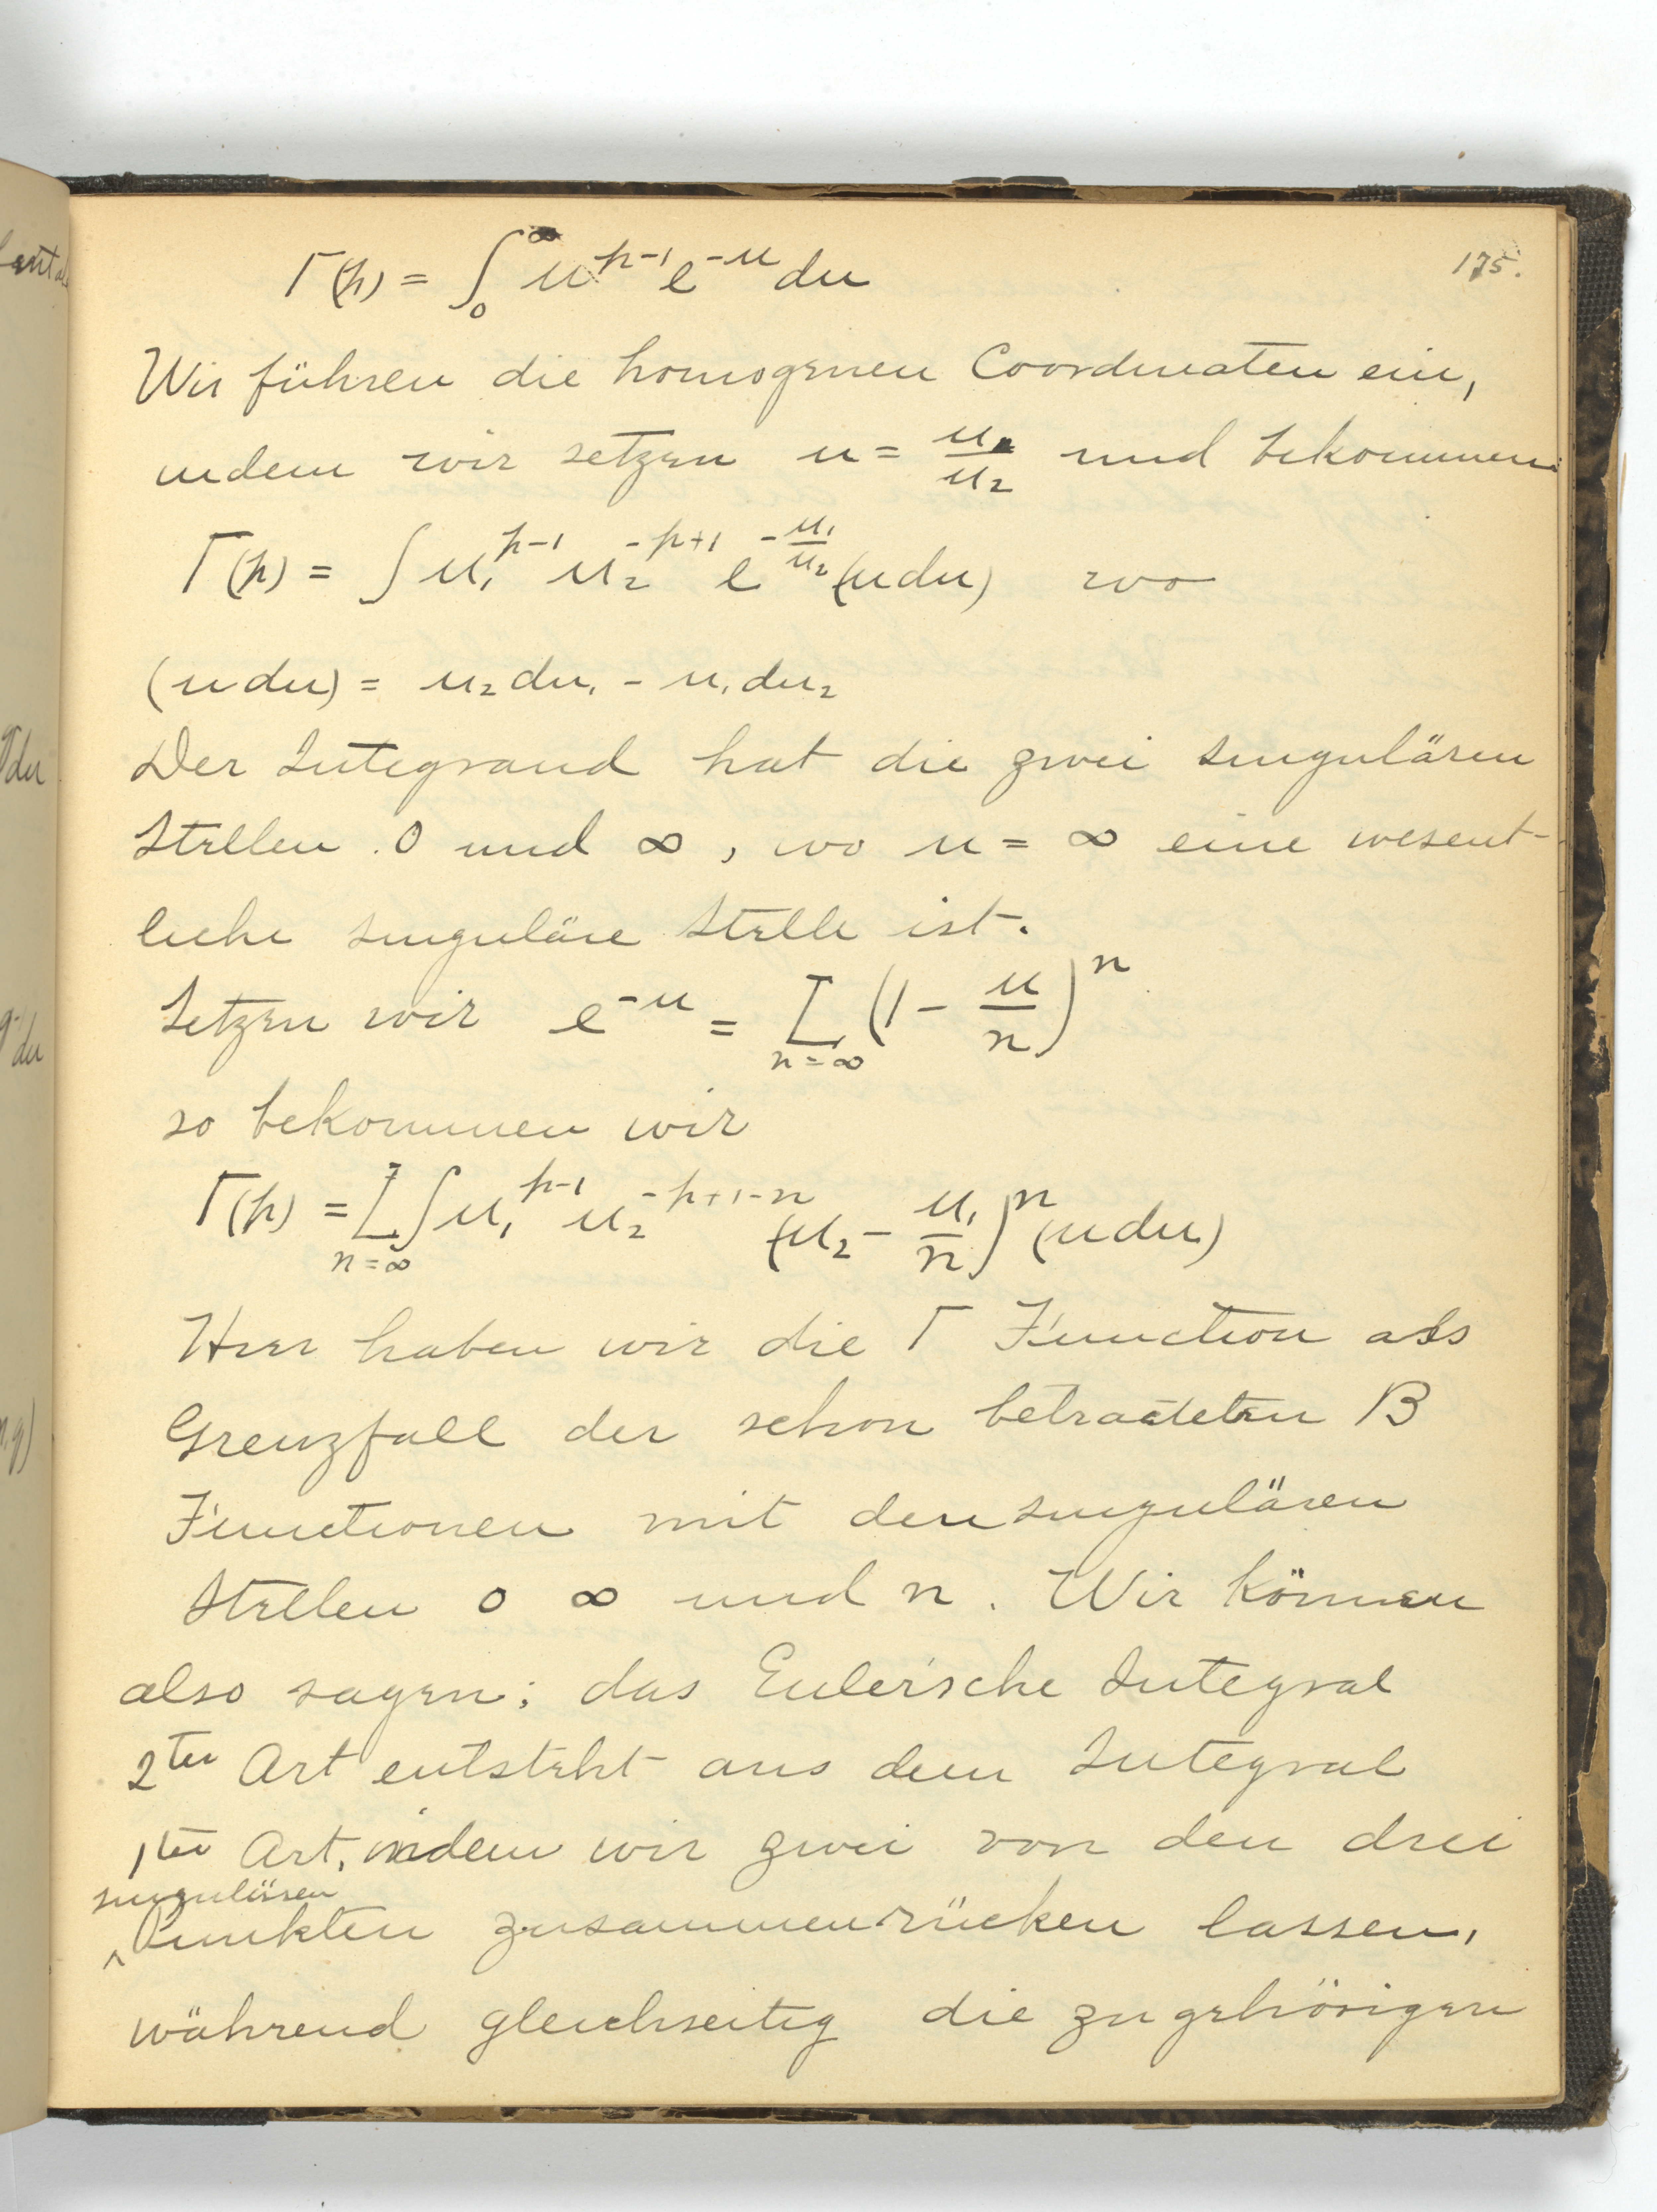 175.
Γ(p) = ∫₀^∞ u^{p-1} e^{-u} du
Wir führen die homogenen Coordinaten ein,
indem wir setzen u = u₁/u₂ und bekommen:
Γ(p) = ∫ u₁^{p-1} u₂^{-p+1} e^{-u₁/u₂} (u du) wo
(u du) = u₂ du₁ - u₁ du₂
Der Integrand hat die zwei singulären
Stellen 0 und ∞, wo u = ∞ eine wesent-
liche singuläre Stelle ist.
Setzen wir e^{-u} = L_{n=∞} (1 - u/n)^n
so bekommen wir
Γ(p) = L_{n=∞} ∫ u₁^{p-1} u₂^{-p+1-n} (u₂ - u₁/n)^n (u du)
Hier haben wir die Γ Function als
Grenzfall der schon betrachteten B
Functionen mit den singulären
Stellen 0 ∞ und n. Wir können
also sagen; das Euler'sche Integral
2ter Art entsteht aus dem Integral
1ter Art, indem wir zwei von den drei
singulären
‸Punkten zusammenrücken lassen,
während gleichseitig die zugehörigen